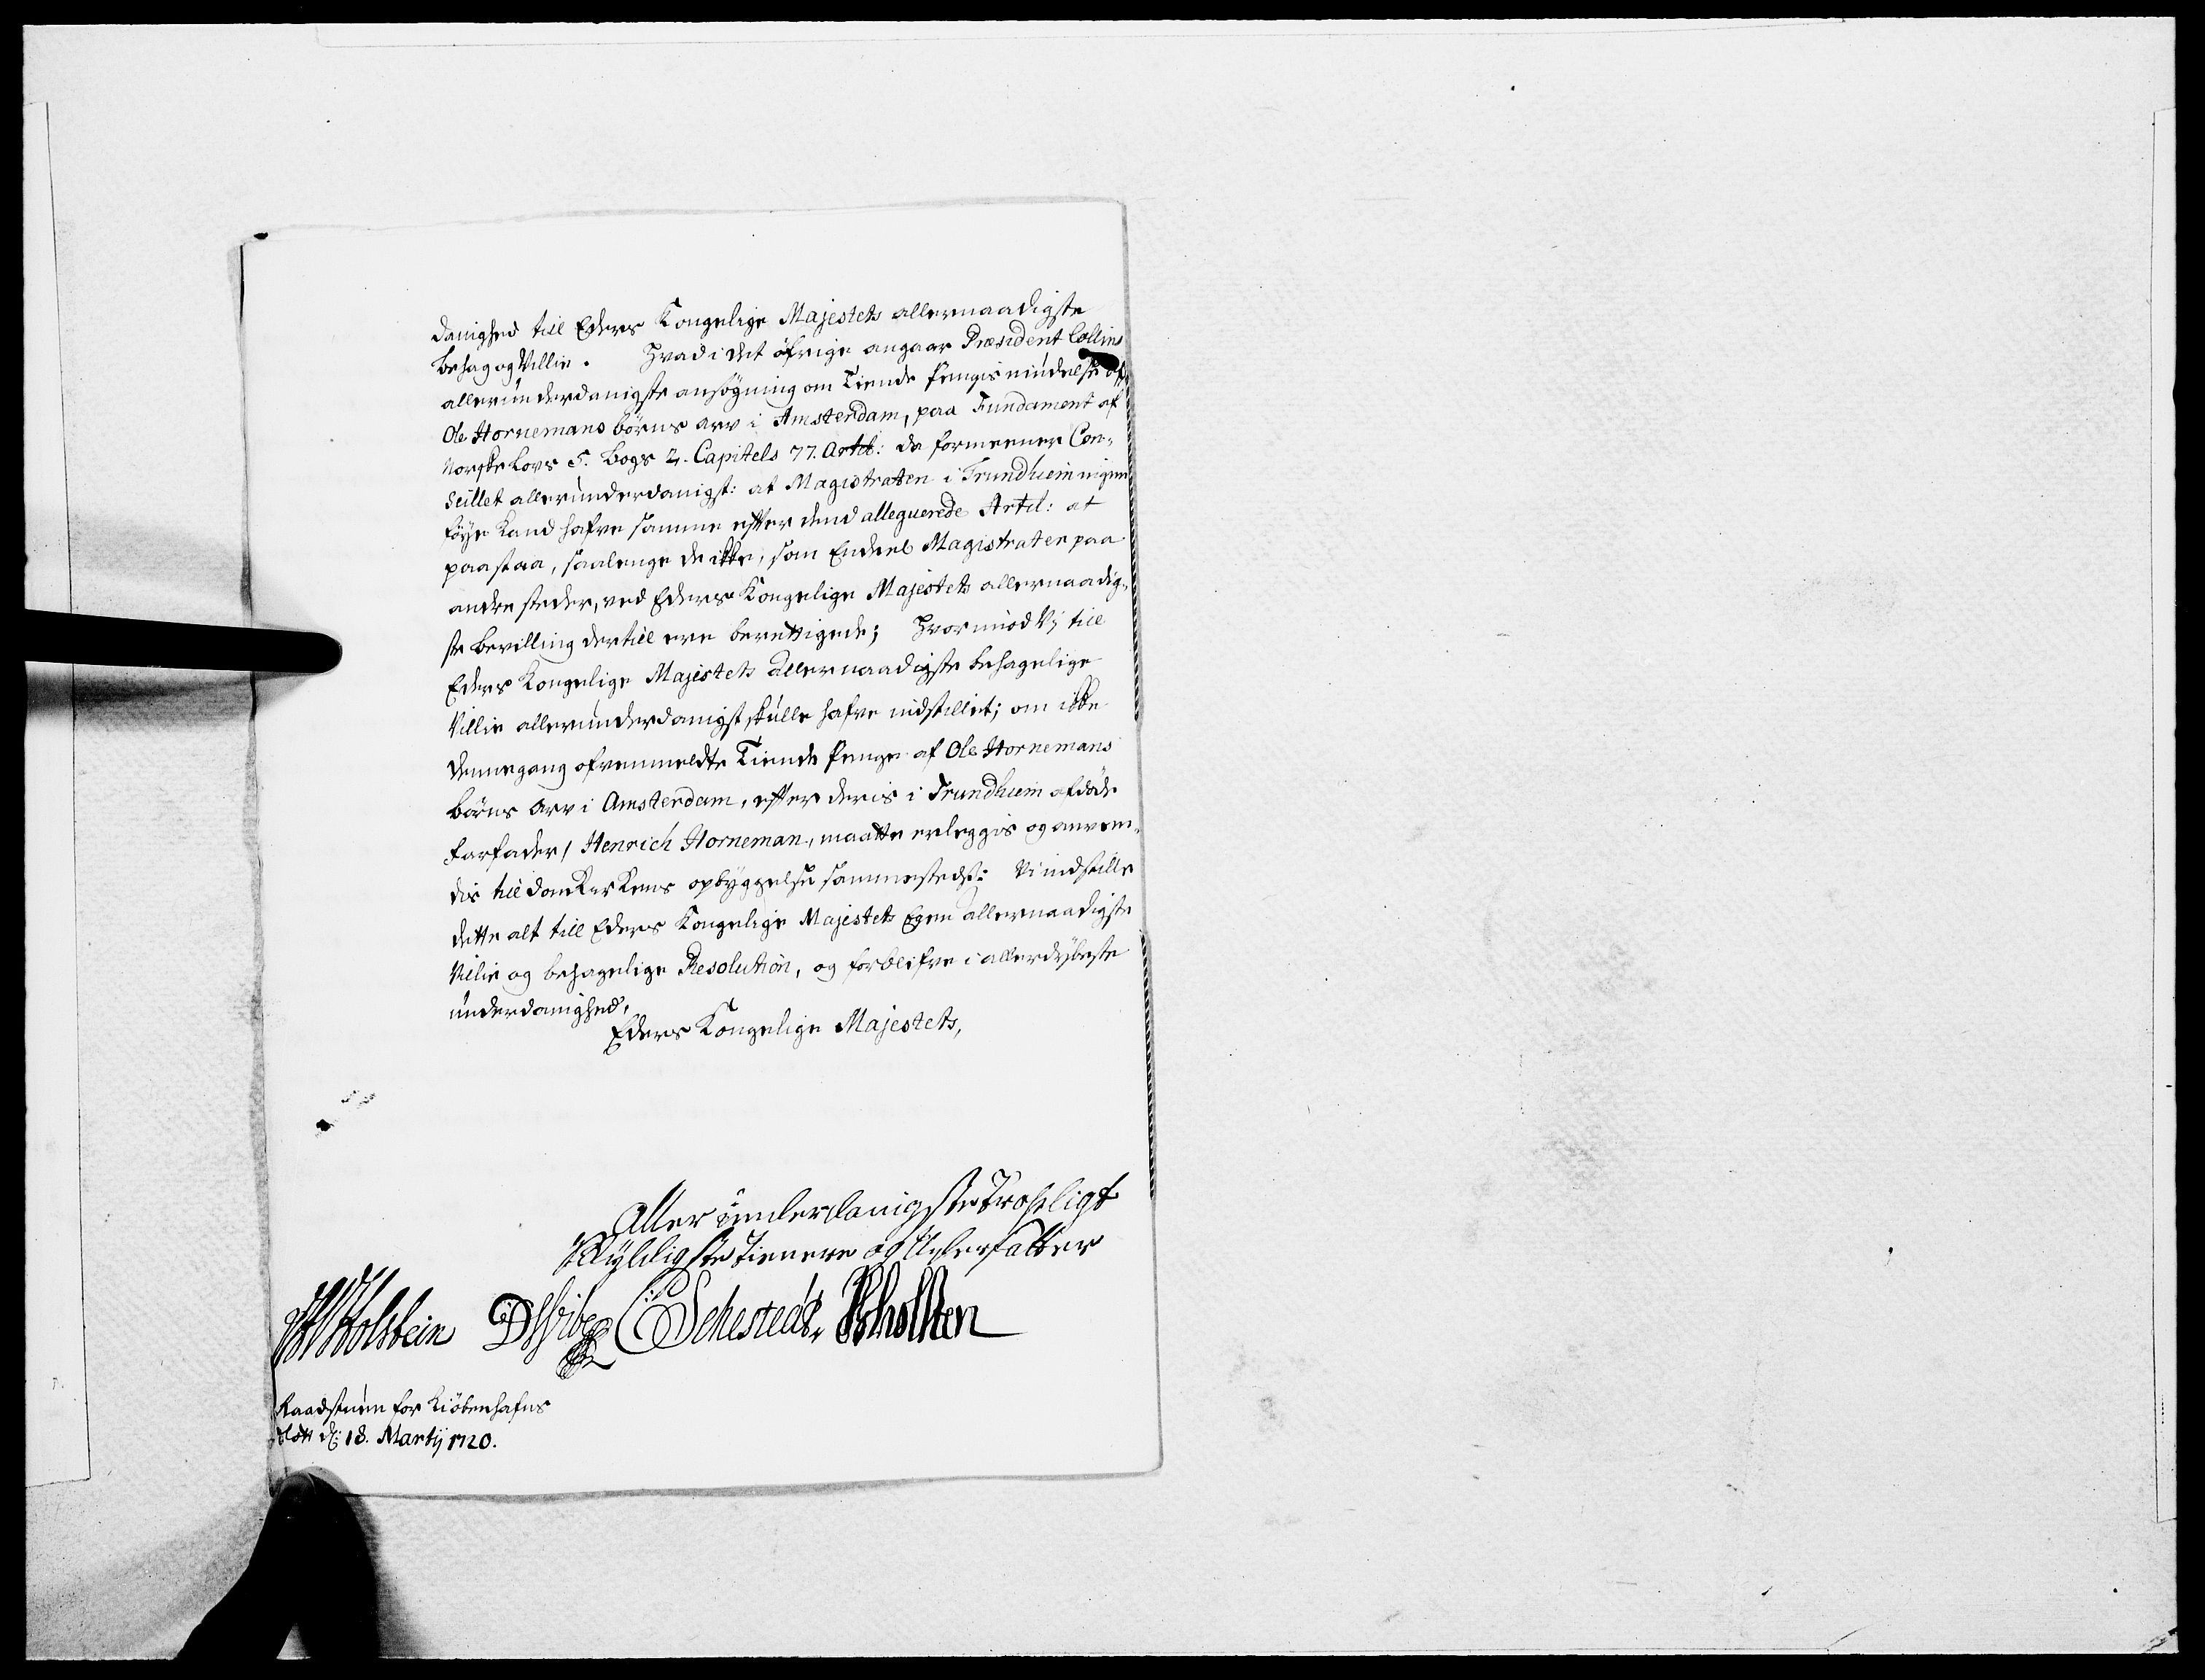 danighed till Eders Kongelige Majestets allernaadigste
behag og Villie. Hvad i det öfrige angaar Præsident Collins
allerunderdanigste ansögning om Tiende Pengis nÿdelse aff
Ole Hornemans börns arv i Amsterdam, paa Fundament af
Norske Lovs 5. Bogs 2. Capitels 77. Artl: da formeener Con-
seillet allerunderdanigst: at Magistraten i Trundhiem ingen
föye Kand hafve samme efter dend alleguerede Artl: at
paastaa, saalenge de ikke, som Endeel Magistrater paa
andre steder, ved Eders Kongelige Majestets allernaadig-
ste bevilling dertill ere berettigede; Hvorimod Vj till
Eders Kongelige Majestets Allernaadigste behagelige
Villie allerunderdanigst skulle hafve indstillet; om ikke
dennegang ofvenmeldte Tiende Penge af Ole Hornemans
börns Arv i Amsterdam, efter deris i Trundhiem afdöde
Farfader, Henrich Horneman, maatte erleggis og anven-
dis till DomKirKens opbyggelse sammestedz: Vi indstille
dette alt till Eders Kongelige Majestets Egen allernaadigste
Villie og behagelige Resolution, og forblifve i allerdybeste
underdanighed,
Eders Kongelige Majestets,
Alleründerdanigste Tropligt
skyldigste Tienere og Undersaatter
JGHolstein DWibe C Sehested. JGholsten
Raadstuen for Kiöbenhafns
Slott d: 18. Martij 1720.